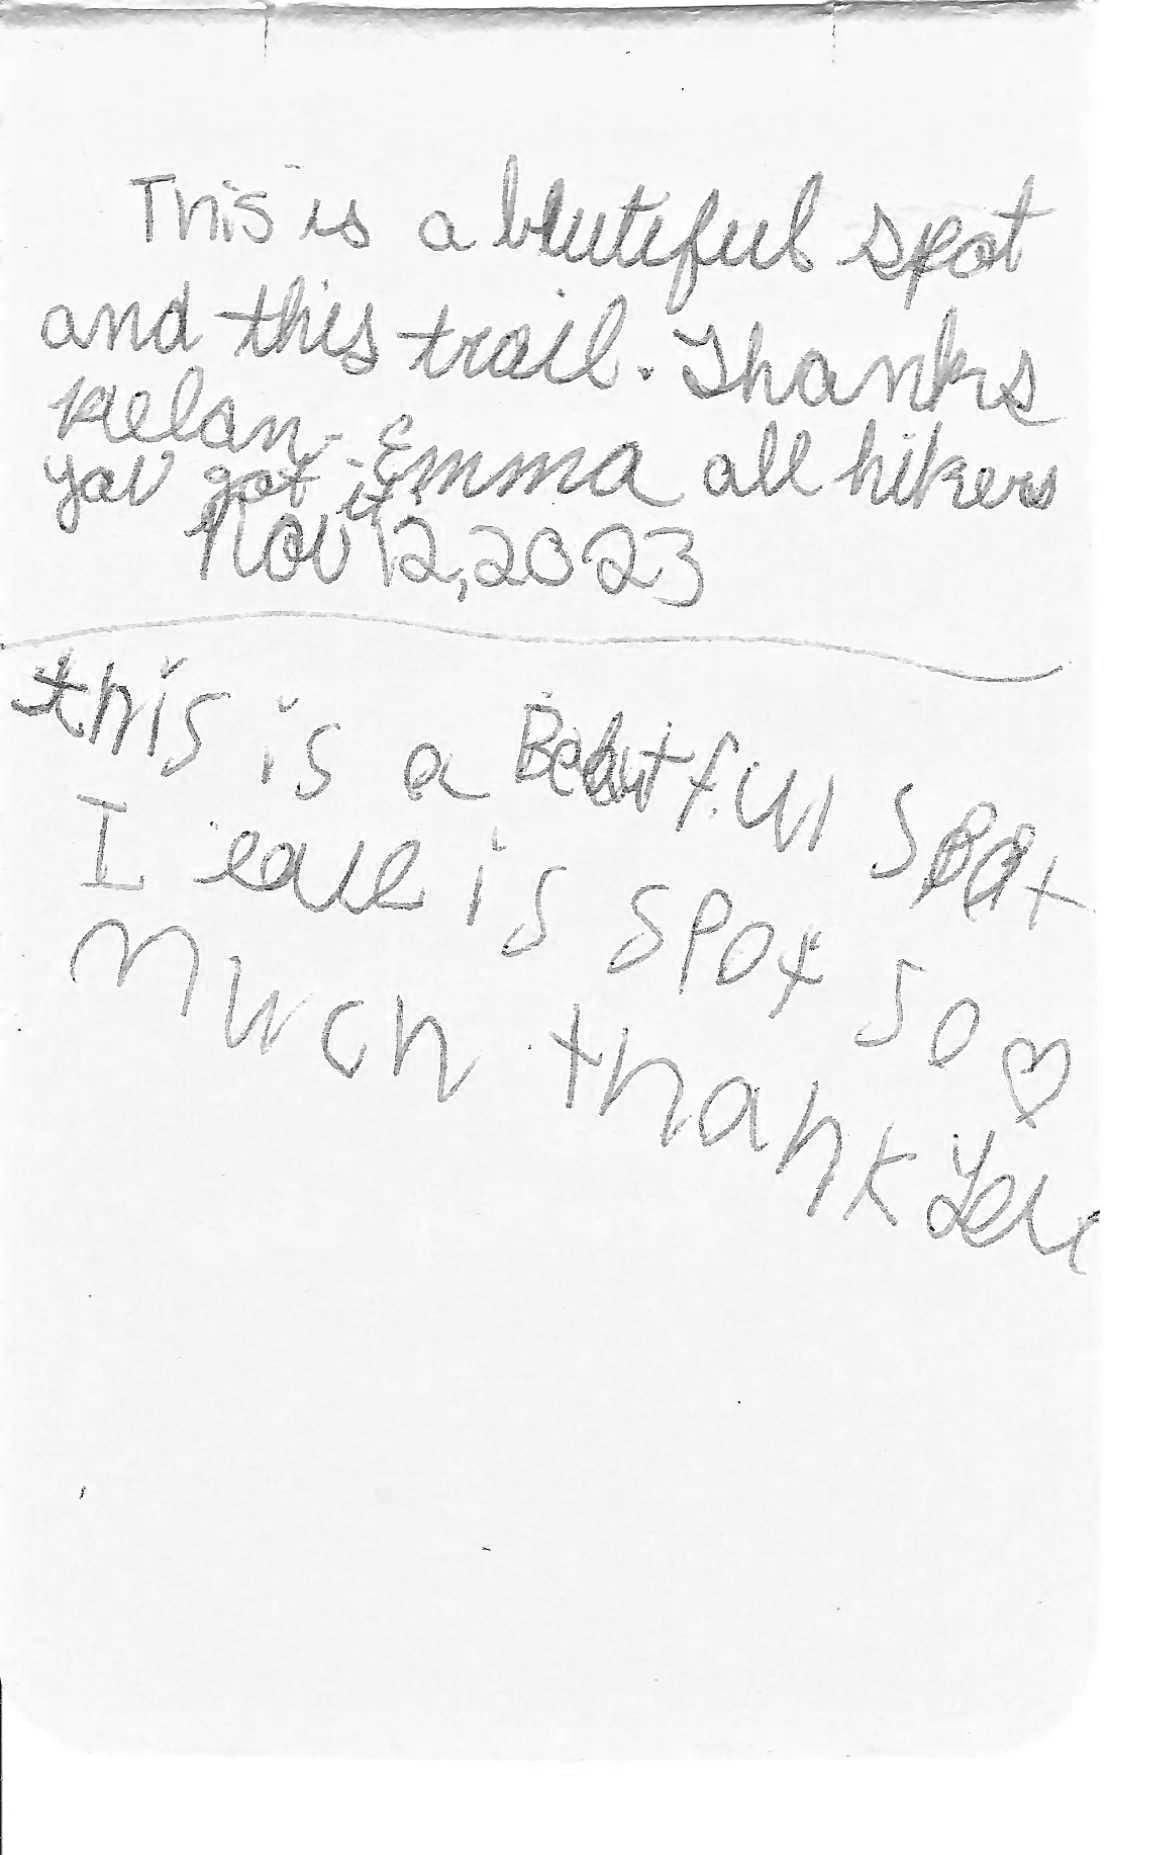 This is a beutiful spot
and this trail. Thanks
Kelan. Emma all hikers
you got it!
Nov 12, 2023
this is a Beautful spot
I is spot so ♡
much thank you